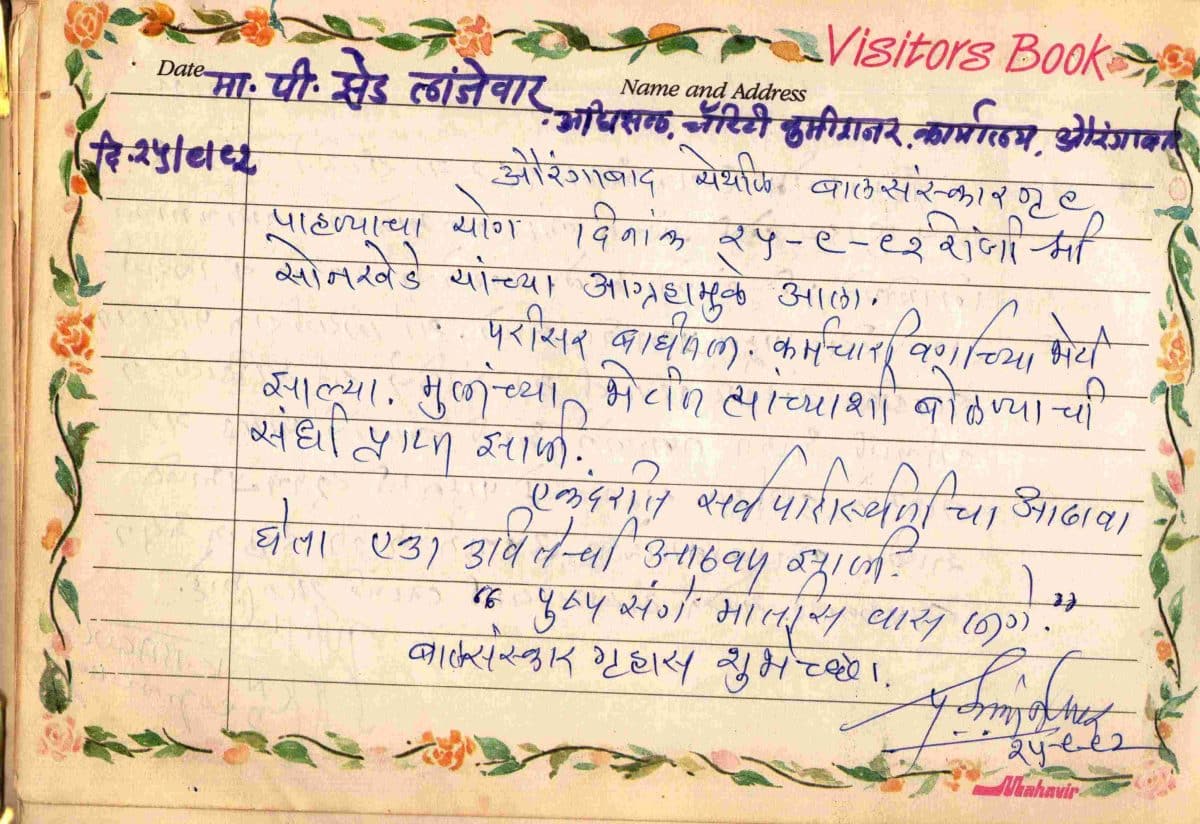 Visitors Book
Date मा. पी. झेड लांजेवार Name and Address
अधिक्षक, चॅरिटी कमीशनर, कार्यालय, औरंगाबाद
दि. २५/९/९२
औरंगाबाद येथील बालसंस्कार गृह
पाहण्याचा योग दिनांक २५-९-९२ रोजी श्री
सोनखेडे यांच्या आग्रहामुळे आला.
परीसर बघीतला. कर्मचारी वर्गाच्या भेटी
झाल्या. मुलांच्या भेटीत त्यांच्याशी बोलण्याची
संधी प्राप्त झाली.
एकंदरीत सर्व परिस्थितीचा आढावा
घेता एका उक्तिची आठवण झाली.
"पुष्प संगे मातीस वास लागे."
बालसंस्कार गृहास शुभेच्छा.
२५-९-९२
Mahavir